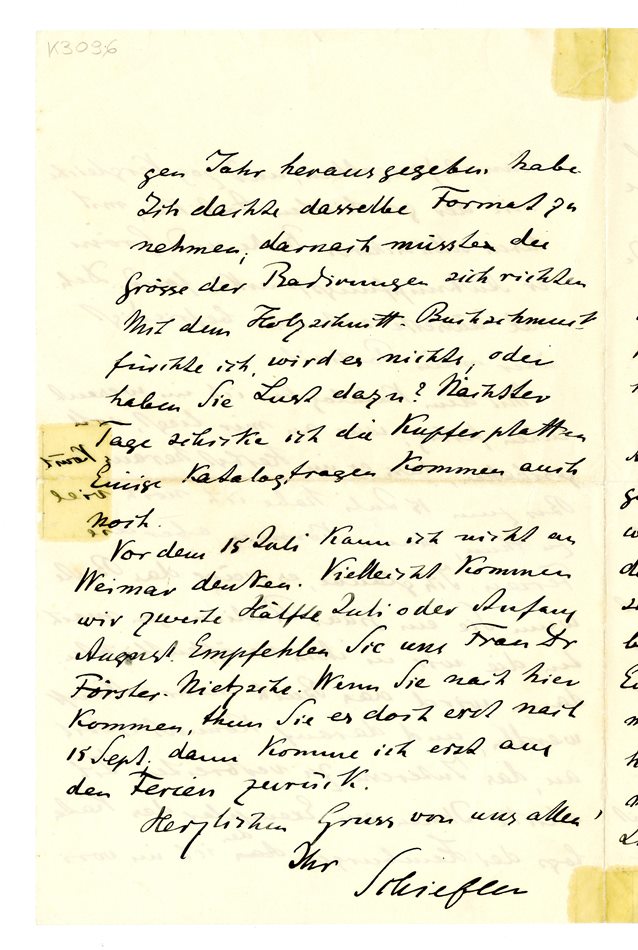 K 3096
gen Jahr herausgegeben habe.
Ich dachte dasselbe Format zu
nehmen, darnach müssten die
Grösse der Radirungen sich richten
Mit dem Holzschnitt-Buchschmuck
fürchte ich, wird es nichts, oder
haben Sie Lust dazu? Nächster
Tage schicke ich die Kupferplatten
Einige Katalogfragen kommen auch
noch.
Vor dem 15 Juli kann ich nicht an
Weimar denken. Vielleicht kommen
wir zweite Hälfte Juli oder Anfang
August. Empfehlen Sie uns Frau Dr
Förster-Nietzsche. Wenn Sie nach hier
kommen, thun Sie es doch erst nach
15 Sept, dann komme ich erst aus
den Ferien zurück.
Herzlichen Gruss von uns allen!
Ihr
Schiefler